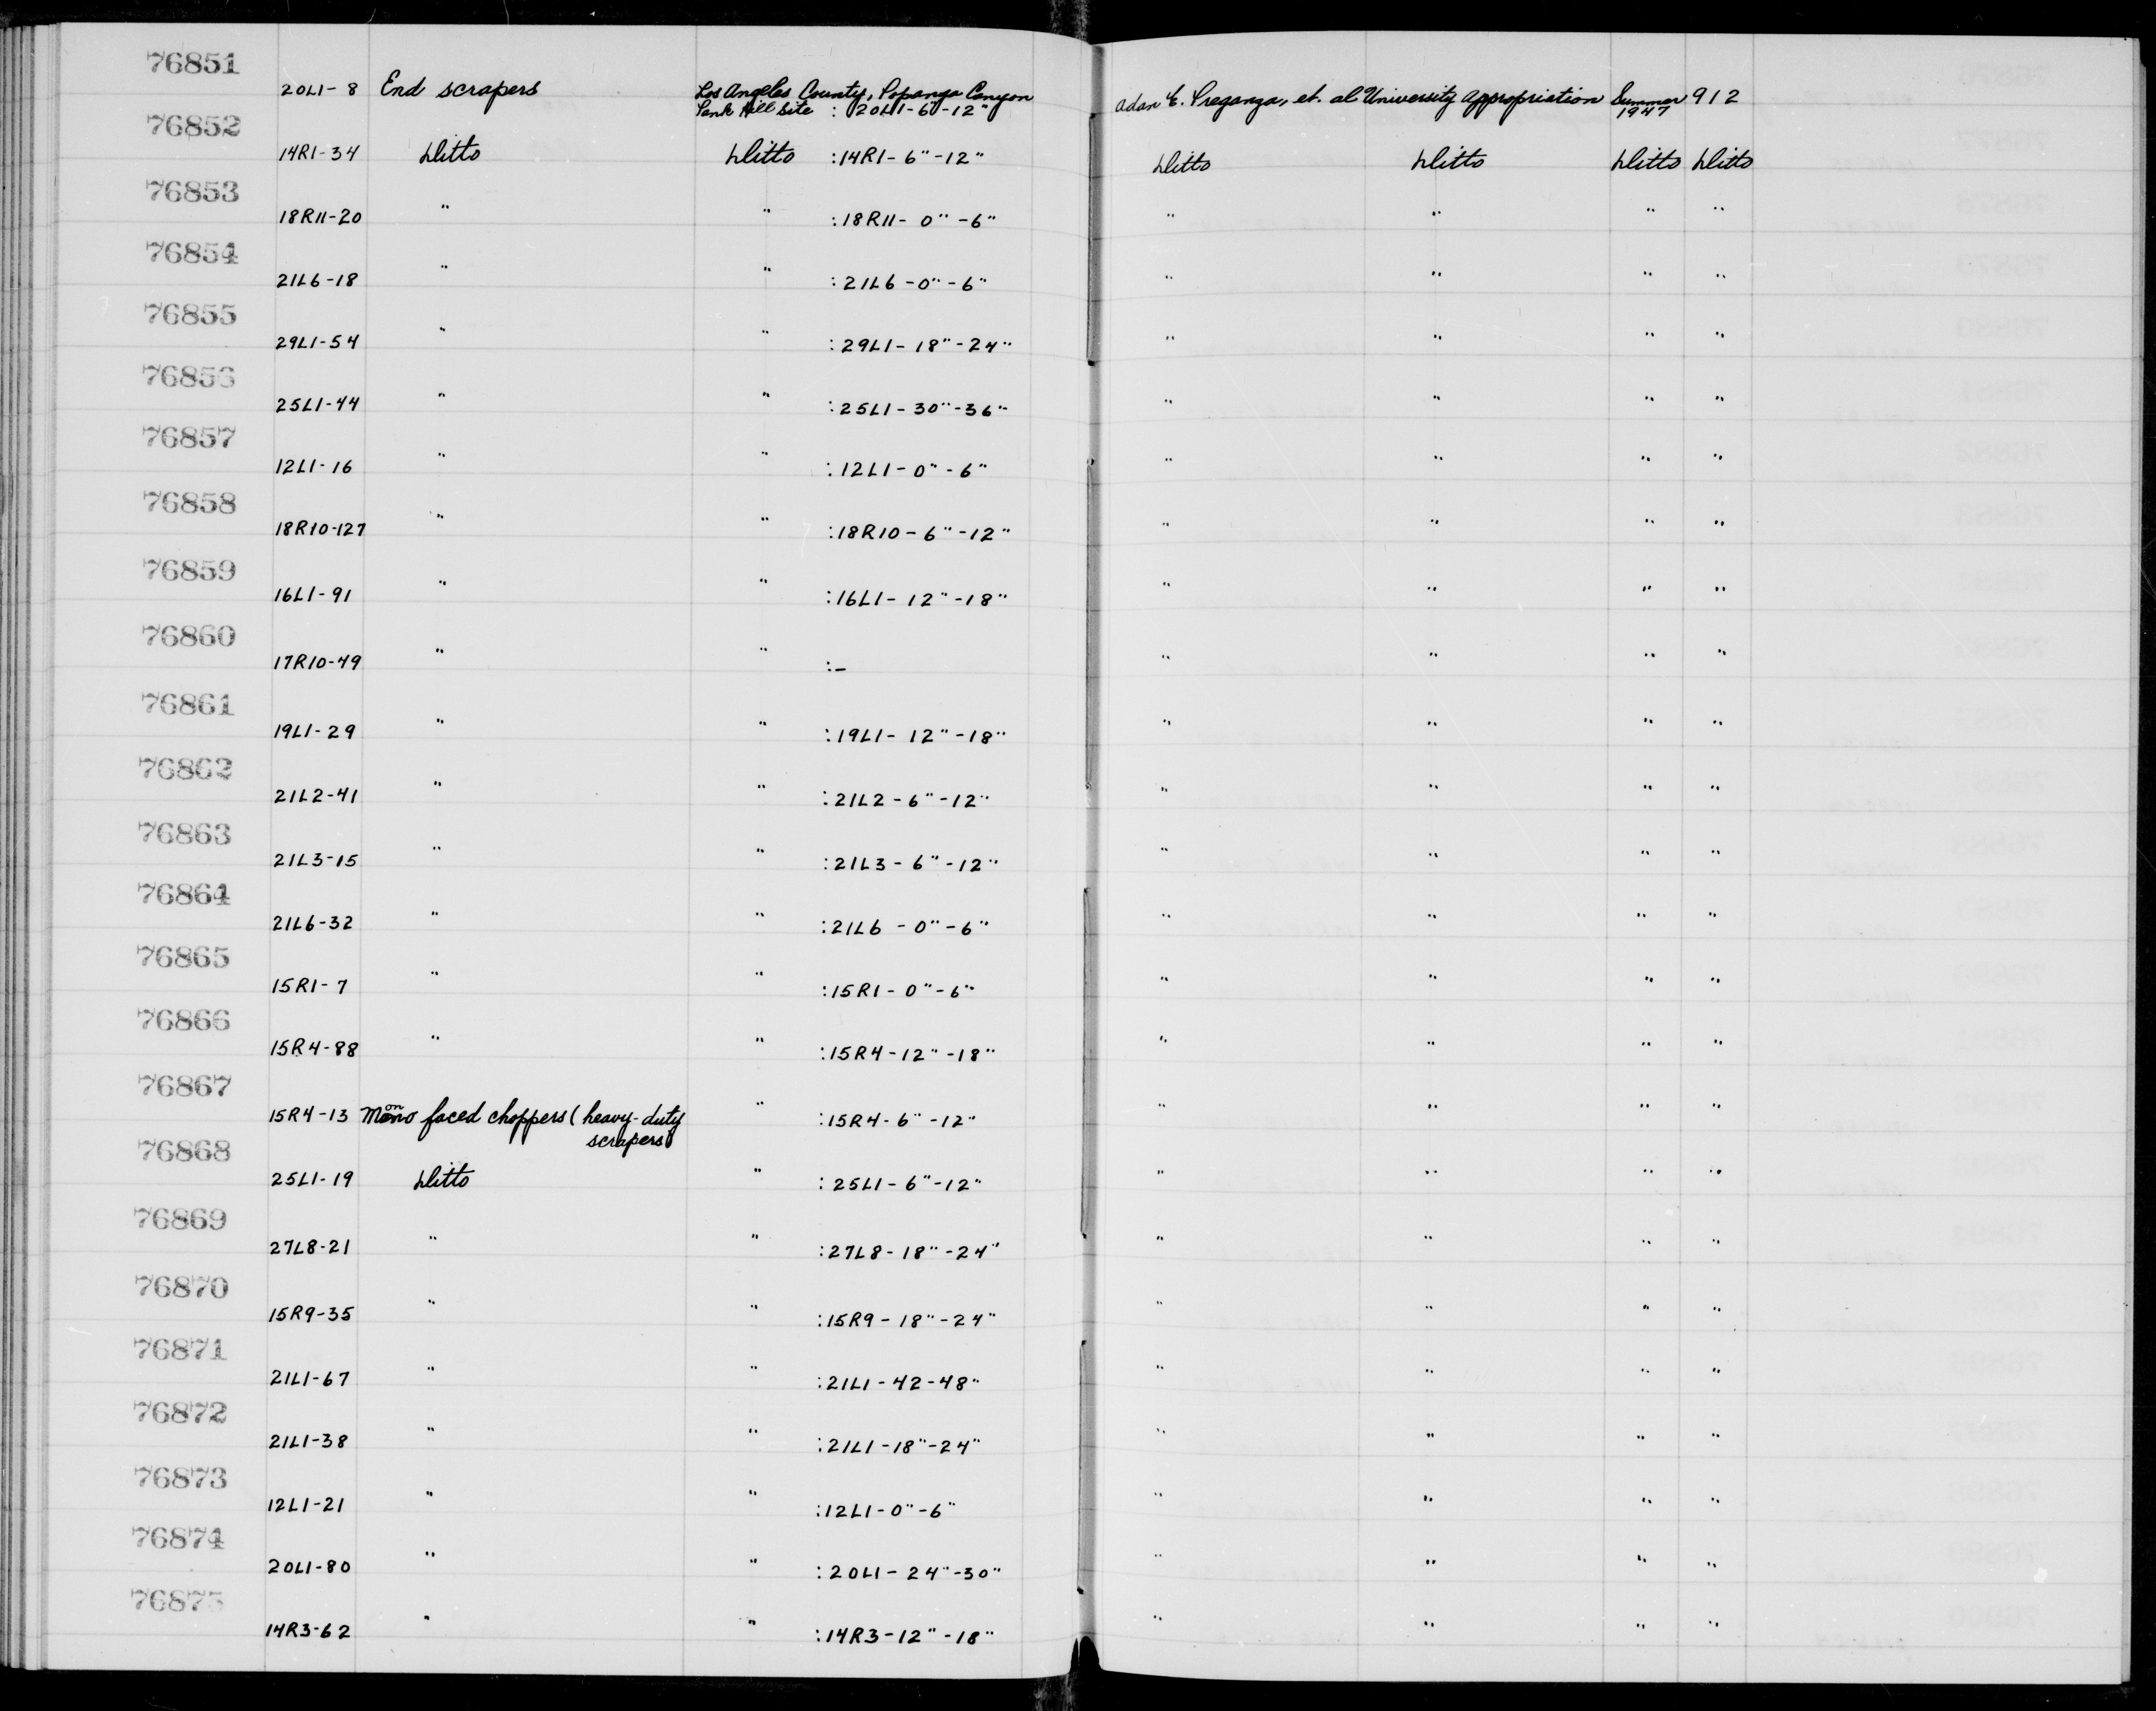 76851
20L1-8 End scrapers Los Angeles County, Topanga Canyon Adan E. Treganza, et. al University Appropriation Summer 912
Tank Hill Site : 20L1-6"-12" 1947
76852
14R1-34 Ditto Ditto :14R1-6"-12" Ditto Ditto Ditto Ditto
76853
18R11-20 " " :18R11-0"-6" " " " "
76854
21L6-18 " " :21L6-0"-6" " " " "
76855
29L1-54 " " :29L1-18"-24" " " " "
76856
25L1-44 " " :25L1-30"-36" " " " "
76857
12L1-16 " " :12L1-0"-6" " " " "
76858
18R10-127 " " :18R10-6"-12" " " " "
76859
16L1-91 " " :16L1-12"-18" " " " "
76860
17R10-49 " " :- " " " "
76861
19L1-29 " " :19L1-12"-18" " " " "
76862
21L2-41 " " :21L2-6"-12" " " " "
76863
21L3-15 " " :21L3-6"-12" " " " "
76864
21L6-32 " " :21L6-0"-6" " " " "
76865
15R1-7 " " :15R1-0"-6" " " " "
76866
15R4-88 " " :15R4-12"-18" " " " "
76867
15R4-13 Mono faced choppers (heavy-duty " :15R4-6"-12" " " " "
scrapers)
76868
25L1-19 Ditto " :25L1-6"-12" " " " "
76869
27L8-21 " " :27L8-18"-24" " " " "
76870
15R9-35 " " :15R9-18"-24" " " " "
76871
21L1-67 " " :21L1-42-48" " " " "
76872
21L1-38 " " :21L1-18"-24" " " " "
76873
12L1-21 " " :12L1-0"-6" " " " "
76874
20L1-80 " " :20L1-24"-30" " " " "
76875
14R3-62 " " :14R3-12"-18" " " " "